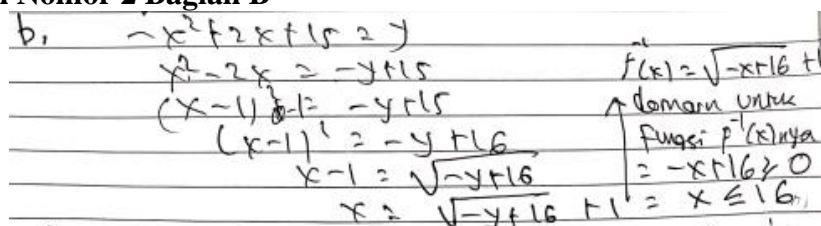 Nomor 2 Bagian B
b. -x²+2x+15 = y
x²-2x = -y+15
(x-1)²-1 = -y+15
(x-1)² = -y+16
x-1 = √-y+16
x = √-y+16 +1
f⁻¹(x) = √-x+16 +1
domain untuk
fungsi f⁻¹(x)nya
= -x+16 ≥ 0
= x ≤ 16